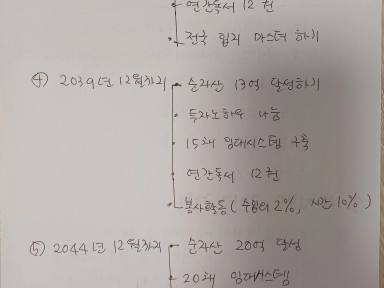 연간독서 12권
전국 입지 마스터 하기
④ 2039년 12월까지 - 순자산 13억 달성하기
투자노하우 나눔
15채 임대시스템 구축
연간독서 12권
봉사활동 (수입의 2%, 시간 10%)
⑤ 2044년 12월까지 - 순자산 20억 달성
20채 임대시스템